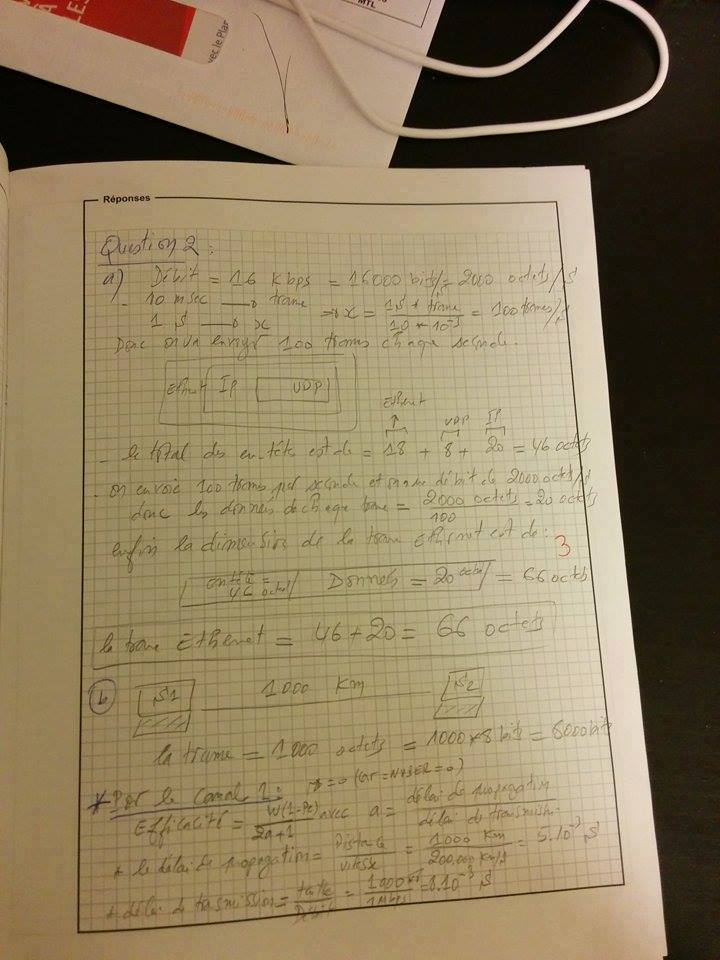 MTL
vec le Plan
Réponses
Question 2 :
a) Débit = 16 kbps = 16000 bits/s = 2000 octets/s
- 10 msec → trame ⇒ x = 1s * trame / 10 * 10⁻³ = 100 trames/s
1 s → x
Donc on va envoyer 100 trames chaque seconde.
Ether IP UDP
Ethernet
↑ UDP IP
- le total des entêtes est de = 18 + 8 + 20 = 46 octets
- on envoie 100 trames par seconde et on a un débit de 2000 octets/s
donc les données de chaque trame = 2000 octets / 100 = 20 octets
enfin la dimension de la trame Ethernet est de : 3
entête = 46 octets / Données = 20 octets = 66 octets
la trame Ethernet = 46 + 20 = 66 octets
b) S1 1000 Km S2
la trame = 1000 octets = 1000 * 8 bits = 8000 bits
* Por le canal 1 : =0 (car = NABER = 0)
Efficacité = W(1-Pc) / 2a+1 avec a = délai de propagation / délai de transmission
+ le délai de propagation = Distance / vitesse = 1000 Km / 200.000 Km/s = 5.10⁻³ s
+ délai de transmission = taille / Débit = 1000*8 / 1Mbps = 8.10⁻³ s